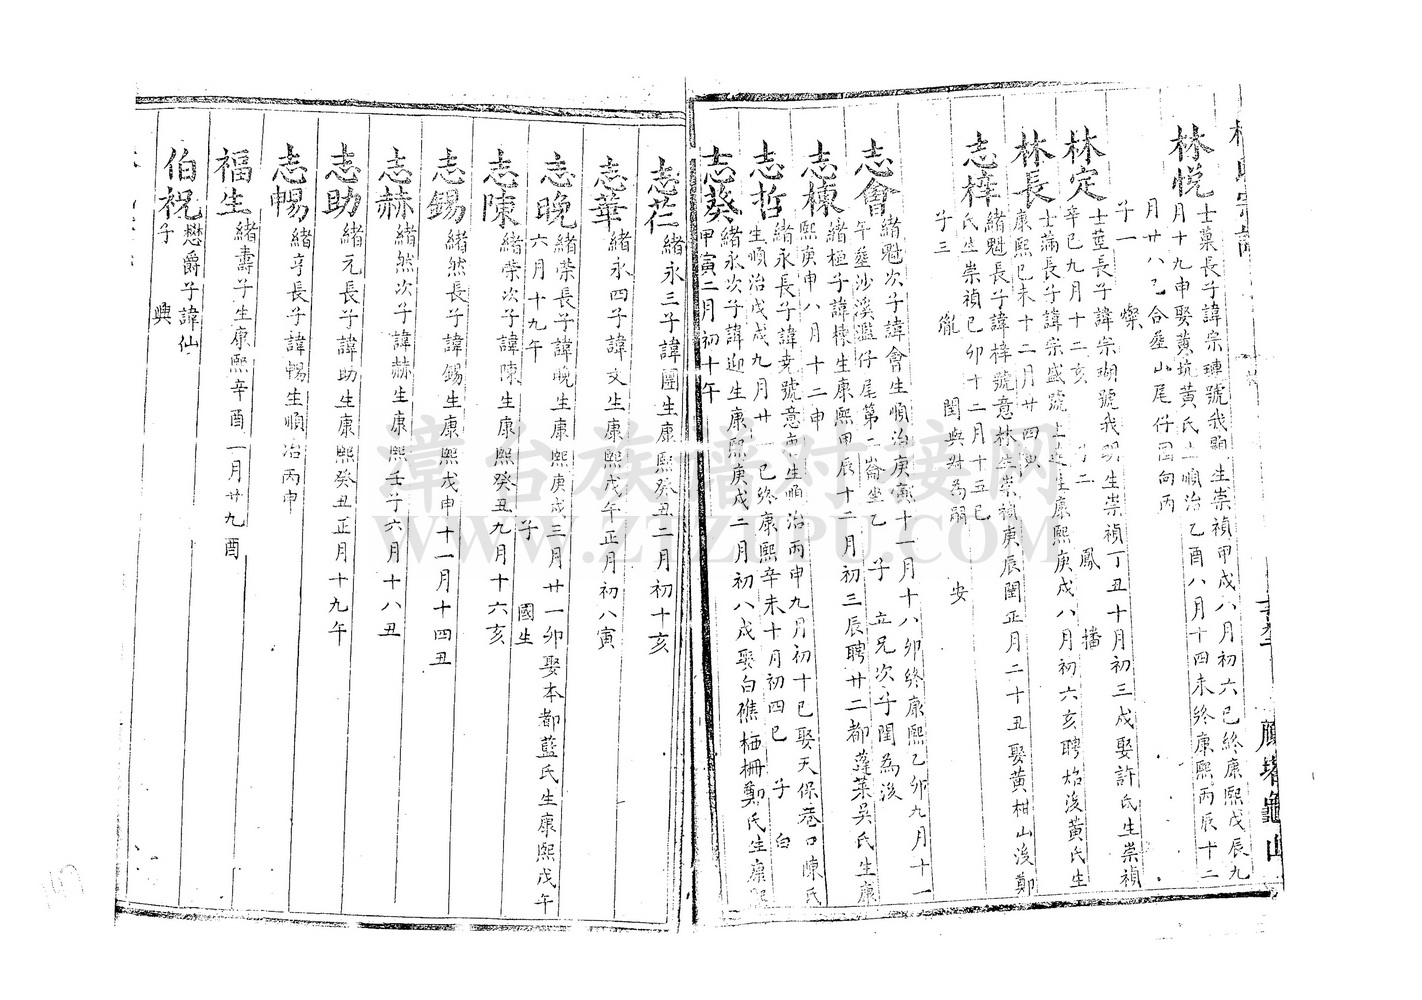 林悅
士菓長子諱宗璉號我顯生崇禎甲戌八月初六巳終康熙戊辰九
月十九申娶黃坑黃氏生順治乙酉八月十四未終康熙丙辰十二
月廿八乙合塟山尾仔圓向丙
子一 燦
林定
士荳長子諱宗瑚號我明生崇禎丁丑十月初三戌娶許氏生崇禎
辛巳九月十二亥 子二 鳳 播
林長
士滿長子諱宗盛號上生康熙庚戌八月初六亥聘焰後黃氏生
康熙己未十二月廿四
志梓
緒魁長子諱梓號意林生崇禎庚辰閏正月二十丑娶黃柑山後鄭
氏生崇禎己卯十二月十五巳
子三 胤 閏與對為嗣 安
志會
緒魁次子諱會生順治庚寅十一月十八卯終康熙乙卯九月十一
午塟沙溪濫仔尾第二崙坐乙 子 立兄次子閏為後
志棟
緒極子諱棟生康熙甲辰十二月初三辰聘廿二都蓬萊吳氏生康
熙庚申八月十二申
志哲
緒永長子諱堯號意哲生順治丙申九月初十巳娶天保巷口陳氏
生順治戊戌九月廿一巳終康熙辛未十月初四巳 子 白
志葵
緒永次子諱迎生康熙庚戌二月初八戌娶白礁栖柵鄭氏生康熙
甲寅二月初十午
志芢
緒永三子諱團生康熙癸丑二月初十亥
志華
緒永四子諱文生康熙戊午正月初八寅
志晚
緒榮長子諱晚生康熙庚戌三月廿一卯娶本都藍氏生康熙戊午
六月十九午 子 國生
志陳
緒榮次子諱陳生康熙癸丑九月十六亥
志錫
緒然長子諱錫生康熙戊申十一月十四丑
志赫
緒然次子諱赫生康熙壬子六月十八丑
志助
緒元長子諱助生康熙癸丑正月十九午
志暢
緒亨長子諱暢生順治丙申
福生
緒壽子生康熙辛酉一月廿九酉
伯祝
懋爵子諱仙
子 興
漳台族谱对接网
WWW.ZTZUPU.COM